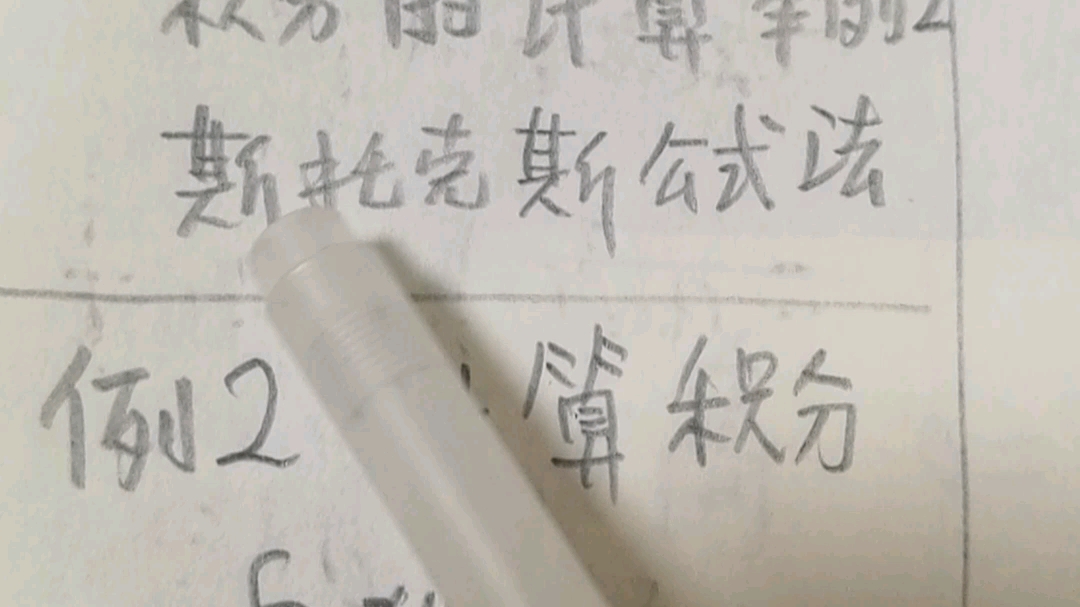 积分的计算举例2
斯托克斯公式法
例2 算积分